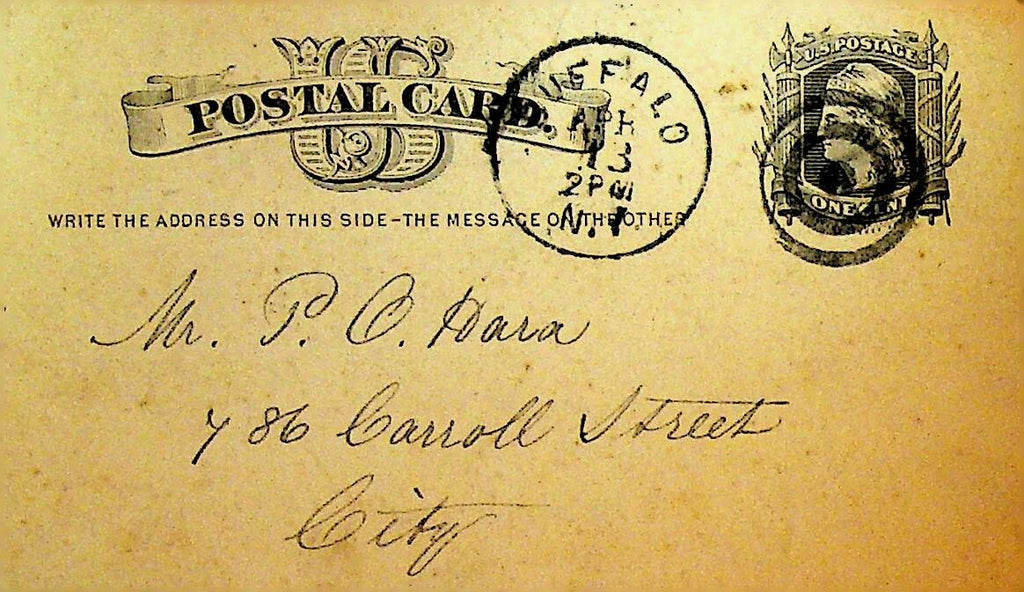 US
POSTAL CARD.
WRITE THE ADDRESS ON THIS SIDE–THE MESSAGE ON THE OTHER
BUFFALO
APR
13
2PM
N.Y.
U.S. POSTAGE
ONE CENT
Mr. P. O. Hara
786 Carroll Street
City